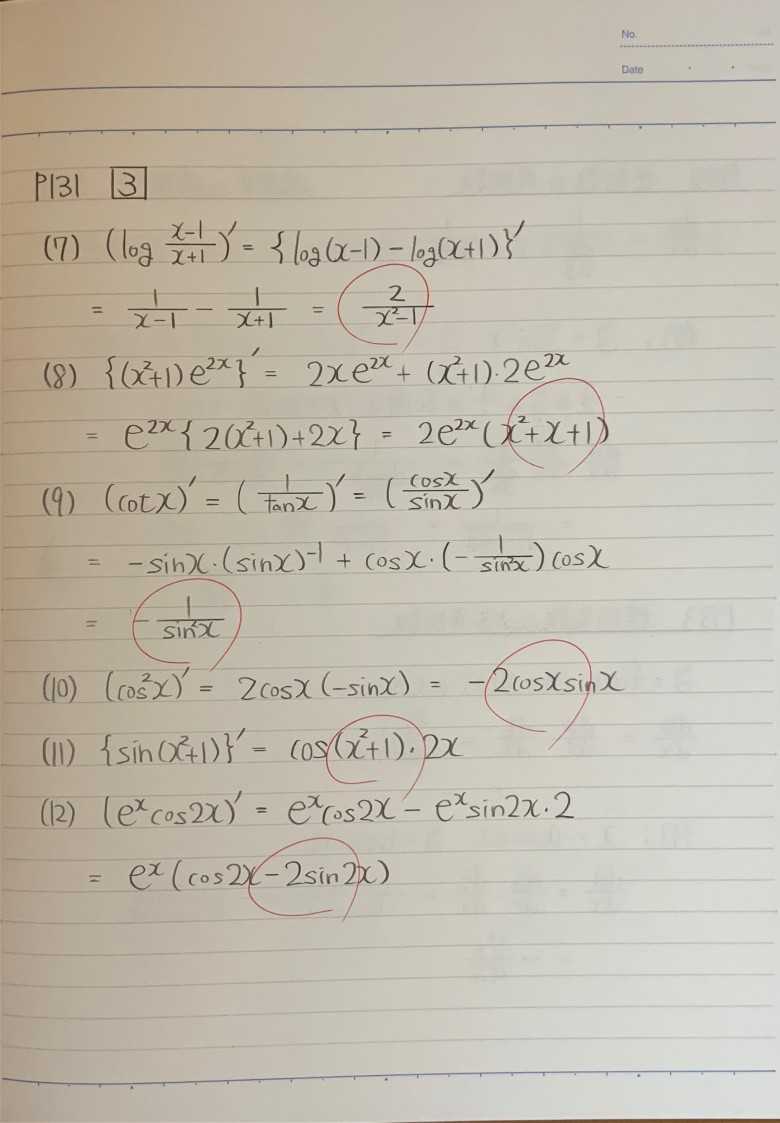 No.
Date
P131 3
(7) (log (x-1)/(x+1))' = {log(x-1) - log(x+1)}'
= 1/(x-1) - 1/(x+1) = 2/(x²-1)
(8) {(x²+1)e^{2x}}' = 2xe^{2x} + (x²+1)·2e^{2x}
= e^{2x}{2(x²+1)+2x} = 2e^{2x}(x²+x+1)
(9) (cotx)' = (1/tanx)' = (cosx/sinx)'
= -sinx·(sinx)^{-1} + cosx·(-1/sin²x)cosx
= -1/sin²x
(10) (cos²x)' = 2cosx(-sinx) = -2cosxsinx
(11) {sin(x²+1)}' = cos(x²+1)·2x
(12) (e^x cos2x)' = e^x cos2x - e^x sin2x·2
= e^x(cos2x-2sin2x)